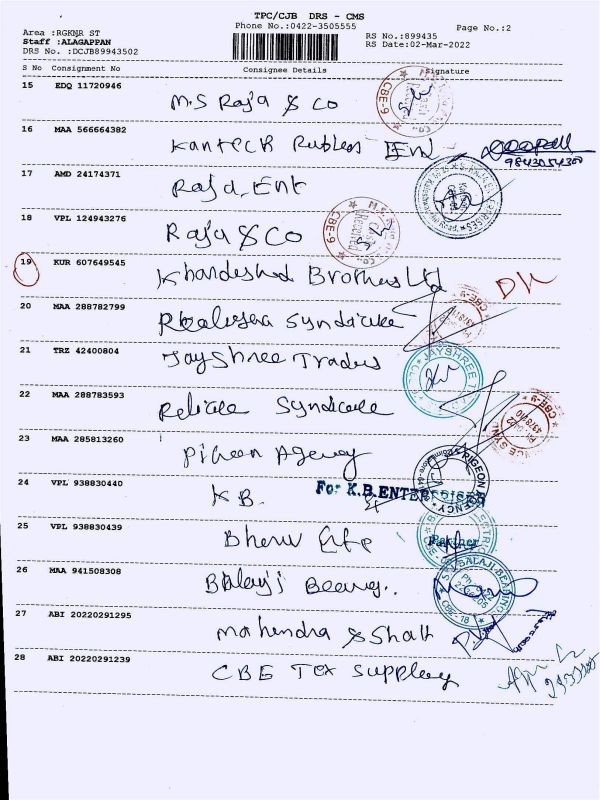 TPC/CJB DRS - CMS
Phone No.:0422-3505555
Page No.:2
Area :RGKNR ST
Staff :ALAGAPPAN
DRS No. :DCJB89943502
RS No.:899435
RS Date:02-Mar-2022
S No Consignment No Consignee Details Signature
15 EDQ 11720946 M.S Raja & Co
CBE-9
16 MAA 566664382 Kantech Rubbers
17 AMD 24174371 Raja, Ent
18 VPL 124943276 Raja & Co
CBE-9
19 KUR 607649545 Khandeshed Brothers Ltd
20 MAA 288782799 Syndicate
CBE-9
21 TRZ 42400804 Jayshree Traders
JAYSHREE
22 MAA 288783593 Reliace Syndicate
CBE-9
23 MAA 285813260 Agency
PIGEON AGENCY
24 VPL 938830440 K B.
For K.B.ENTERPRISES
25 VPL 938830439
Partner
26 MAA 941508308
BALAJI BEARING
CBE-18
27 ABI 20220291295 Mahendra & Shah
28 ABI 20220291239 CBE Tex Suppley